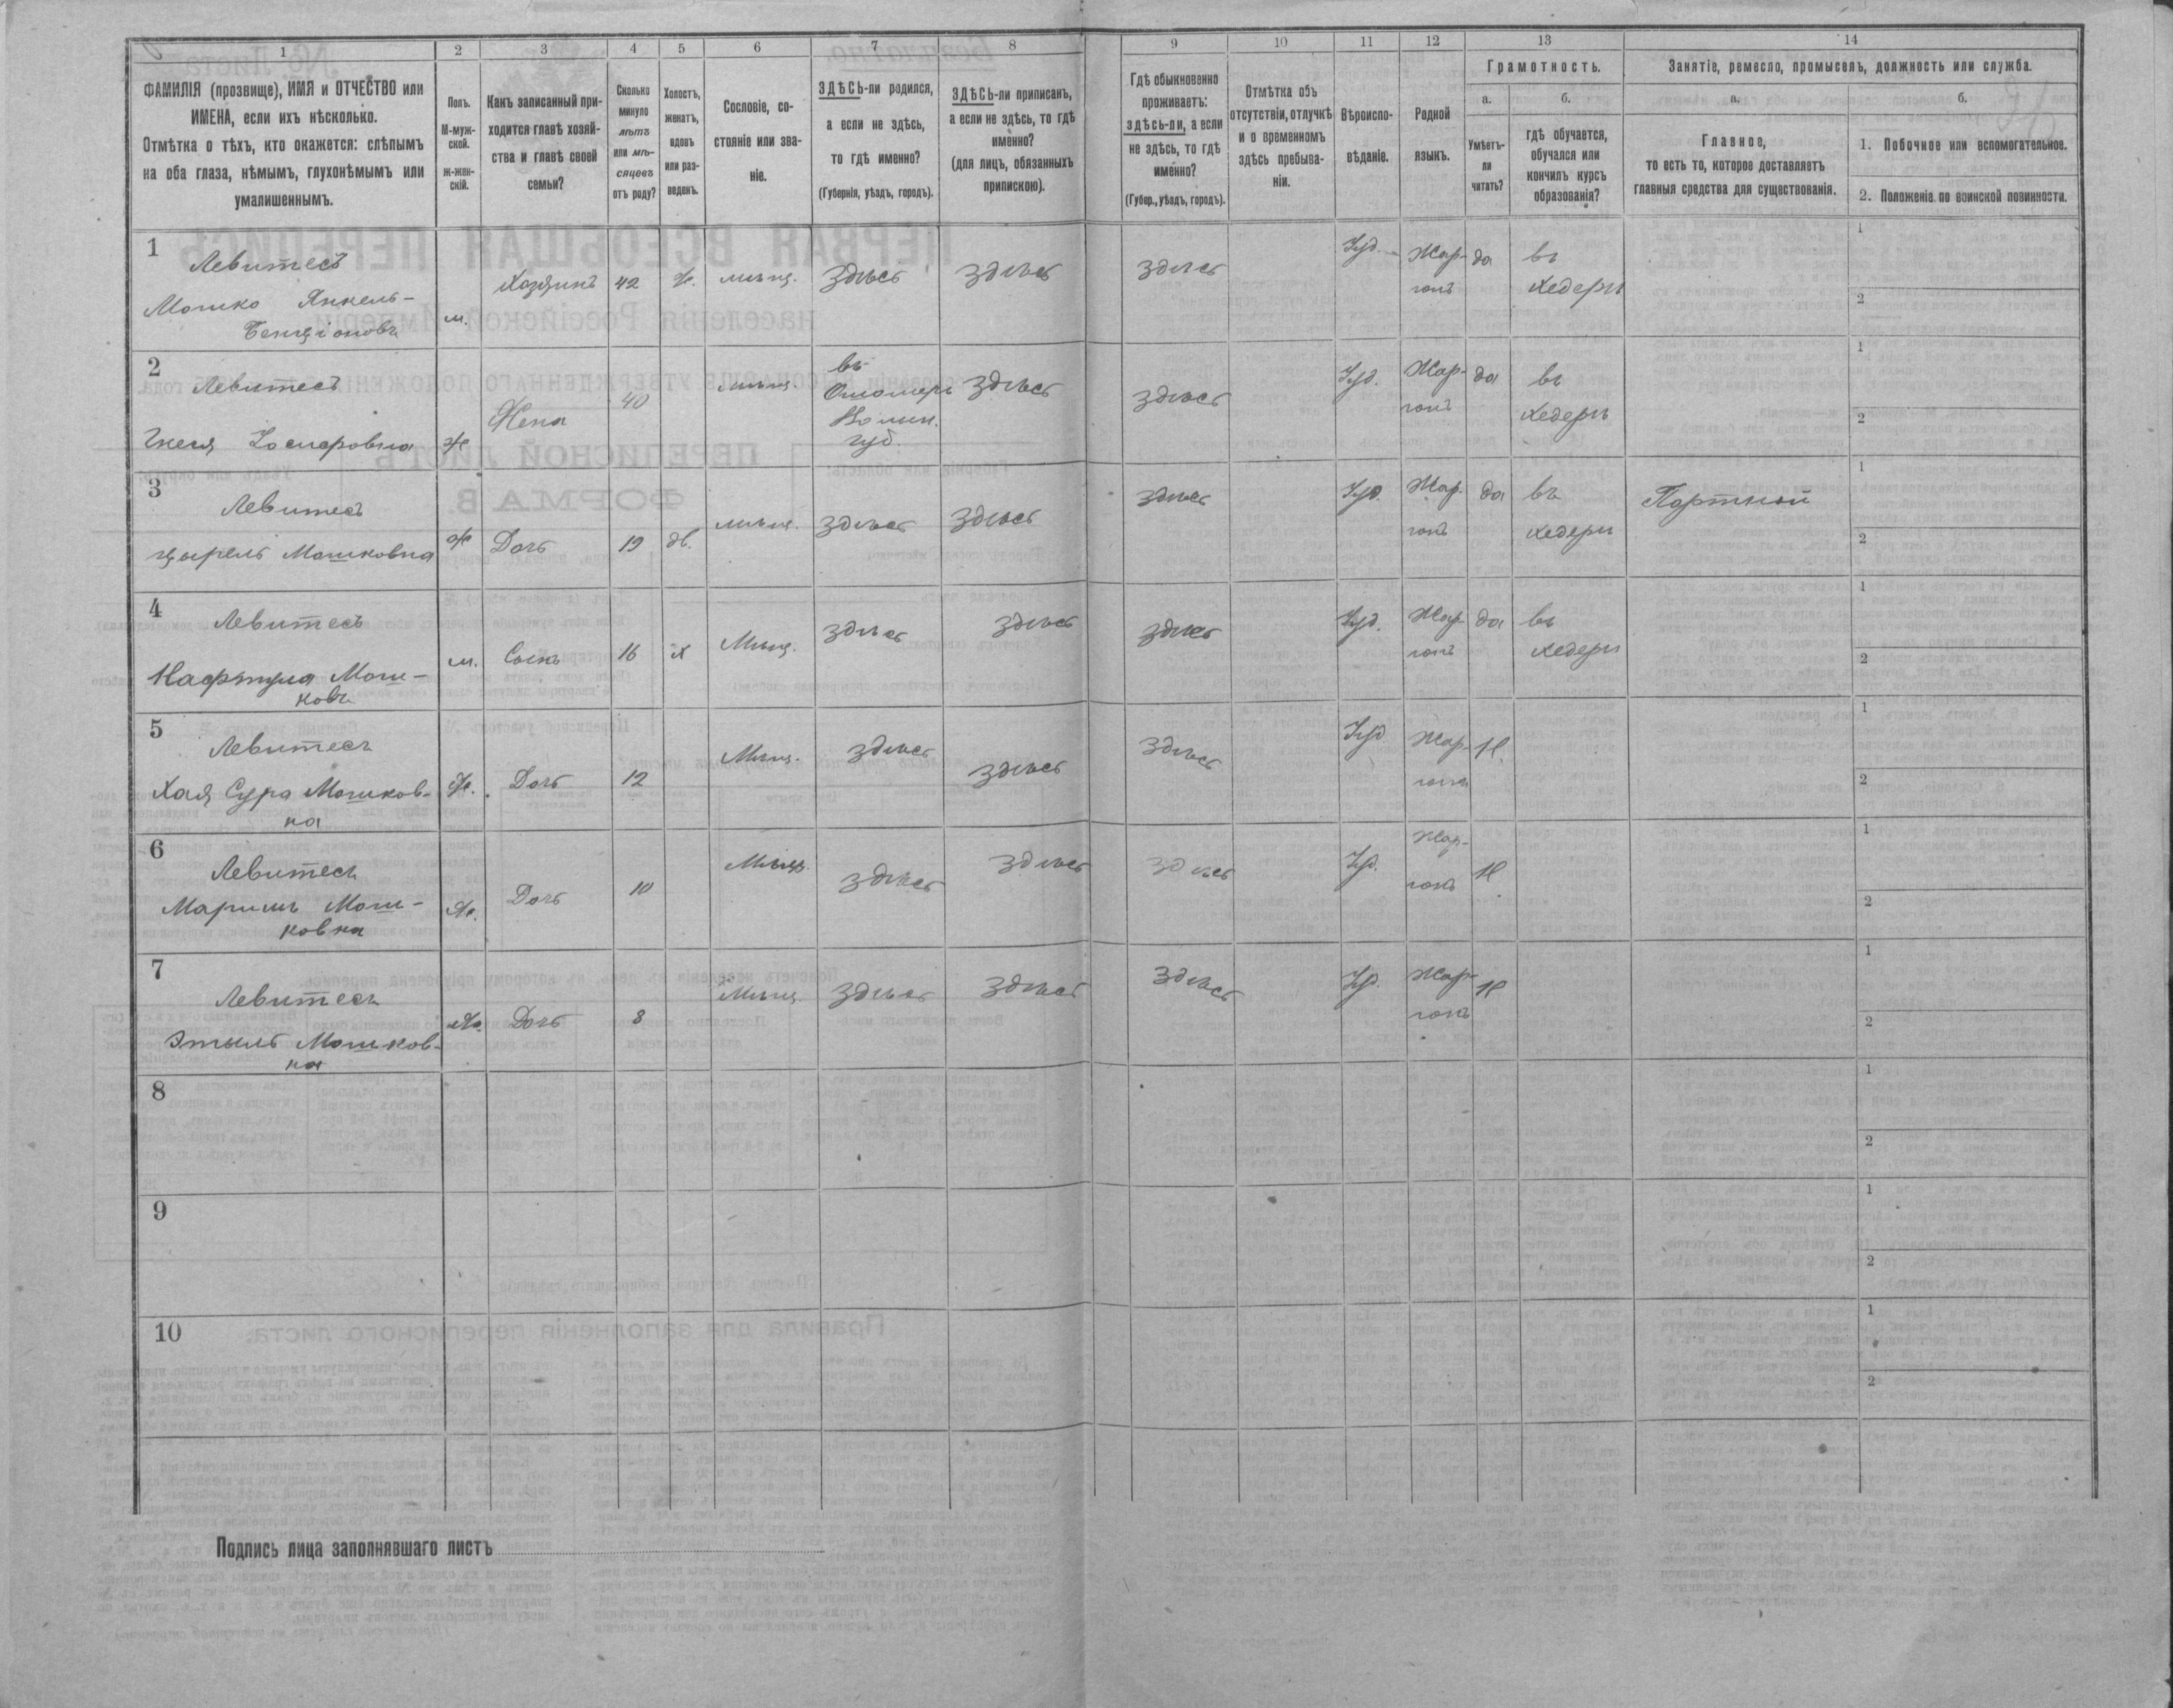 1 2 3 4 5 6 7 8 9 10 11 12 13 14
ФАМИЛІЯ (прозвище), ИМЯ и ОТЧЕСТВО или
ИМЕНА, если ихъ нѣсколько.
Отмѣтка о тѣхъ, кто окажется: слѣпымъ
на оба глаза, нѣмымъ, глухонѣмымъ или
умалишеннымъ.
Полъ.
М-муж-
ской.
ж-жен-
скій.
Какъ записанный при-
ходится главѣ хозяй-
ства и главѣ своей
семьи?
Сколько
минуло
лѣтъ
или мѣ-
сяцевъ
отъ роду?
Холостъ,
женатъ,
вдовъ
или раз-
веденъ.
Сословіе, со-
стояніе или зва-
ніе.
ЗДѢСЬ-ли родился,
а если не здѣсь,
то гдѣ именно?
(Губернія, уѣздъ, городъ).
ЗДѢСЬ-ли приписанъ,
а если не здѣсь, то гдѣ
именно?
(для лицъ, обязанныхъ
припискою).
Гдѣ обыкновенно
проживаетъ:
здѣсь-ли, а если
не здѣсь, то гдѣ
именно?
(Губер., уѣздъ, городъ).
Отмѣтка объ
отсутствіи, отлучкѣ
и о временномъ
здѣсь пребыва-
ніи.
Вѣроиспо-
вѣданіе.
Родной
языкъ.
Грамотность.
а.
Умѣетъ-
ли
читать?
б.
гдѣ обучается,
обучался или
кончилъ курсъ
образованія?
Занятіе, ремесло, промыселъ, должность или служба.
а.
Главное,
то есть то, которое доставляетъ
главныя средства для существованія.
б.
1. Побочное или вспомогательное.
2. Положеніе по воинской повинности.
1
Левитесъ
Мошко Янкель-
Бенціоновъ
м. Хозяинъ 42 ж. мѣщ. здѣсь здѣсь здѣсь Іуд. Жар- да въ
гонъ Хедеръ
1
2
2
Левитесъ
Гнеся Іосифовна
ж Жена 40 мѣщ. въ
Волын.
губ.
здѣсь здѣсь Іуд. Жар- да въ
гонъ Хедеръ
1
2
3
Левитесъ
Цырель Мошковна
ж Дочь 19 дѣ. мѣщ. здѣсь здѣсь здѣсь Іуд. Жар- да въ Портной
гонъ Хедеръ
1
2
4
Левитесъ
Нафтула Мош-
ковъ
м. Сынъ 16 х Мѣщ. здѣсь здѣсь здѣсь Іуд. Жар- да въ
гонъ Хедеръ
1
2
5
Левитесъ
Хая Сура Мошков-
на
ж. Дочь 12 Мѣщ. здѣсь здѣсь здѣсь Іуд Жар- Н.
гонъ
1
2
6
Левитесъ
Маримъ Мош-
ковна
ж. Дочь 10 Мѣщ. здѣсь здѣсь здѣсь Іуд. Жар- Н.
гонъ
1
2
7
Левитесъ
Этыль Мошков-
на
ж. Дочь 8 Мѣщ. здѣсь здѣсь здѣсь Іуд. Жар- Н
гонъ
1
2
8
1
2
9
1
2
10
1
2
Подпись лица заполнявшаго листъ